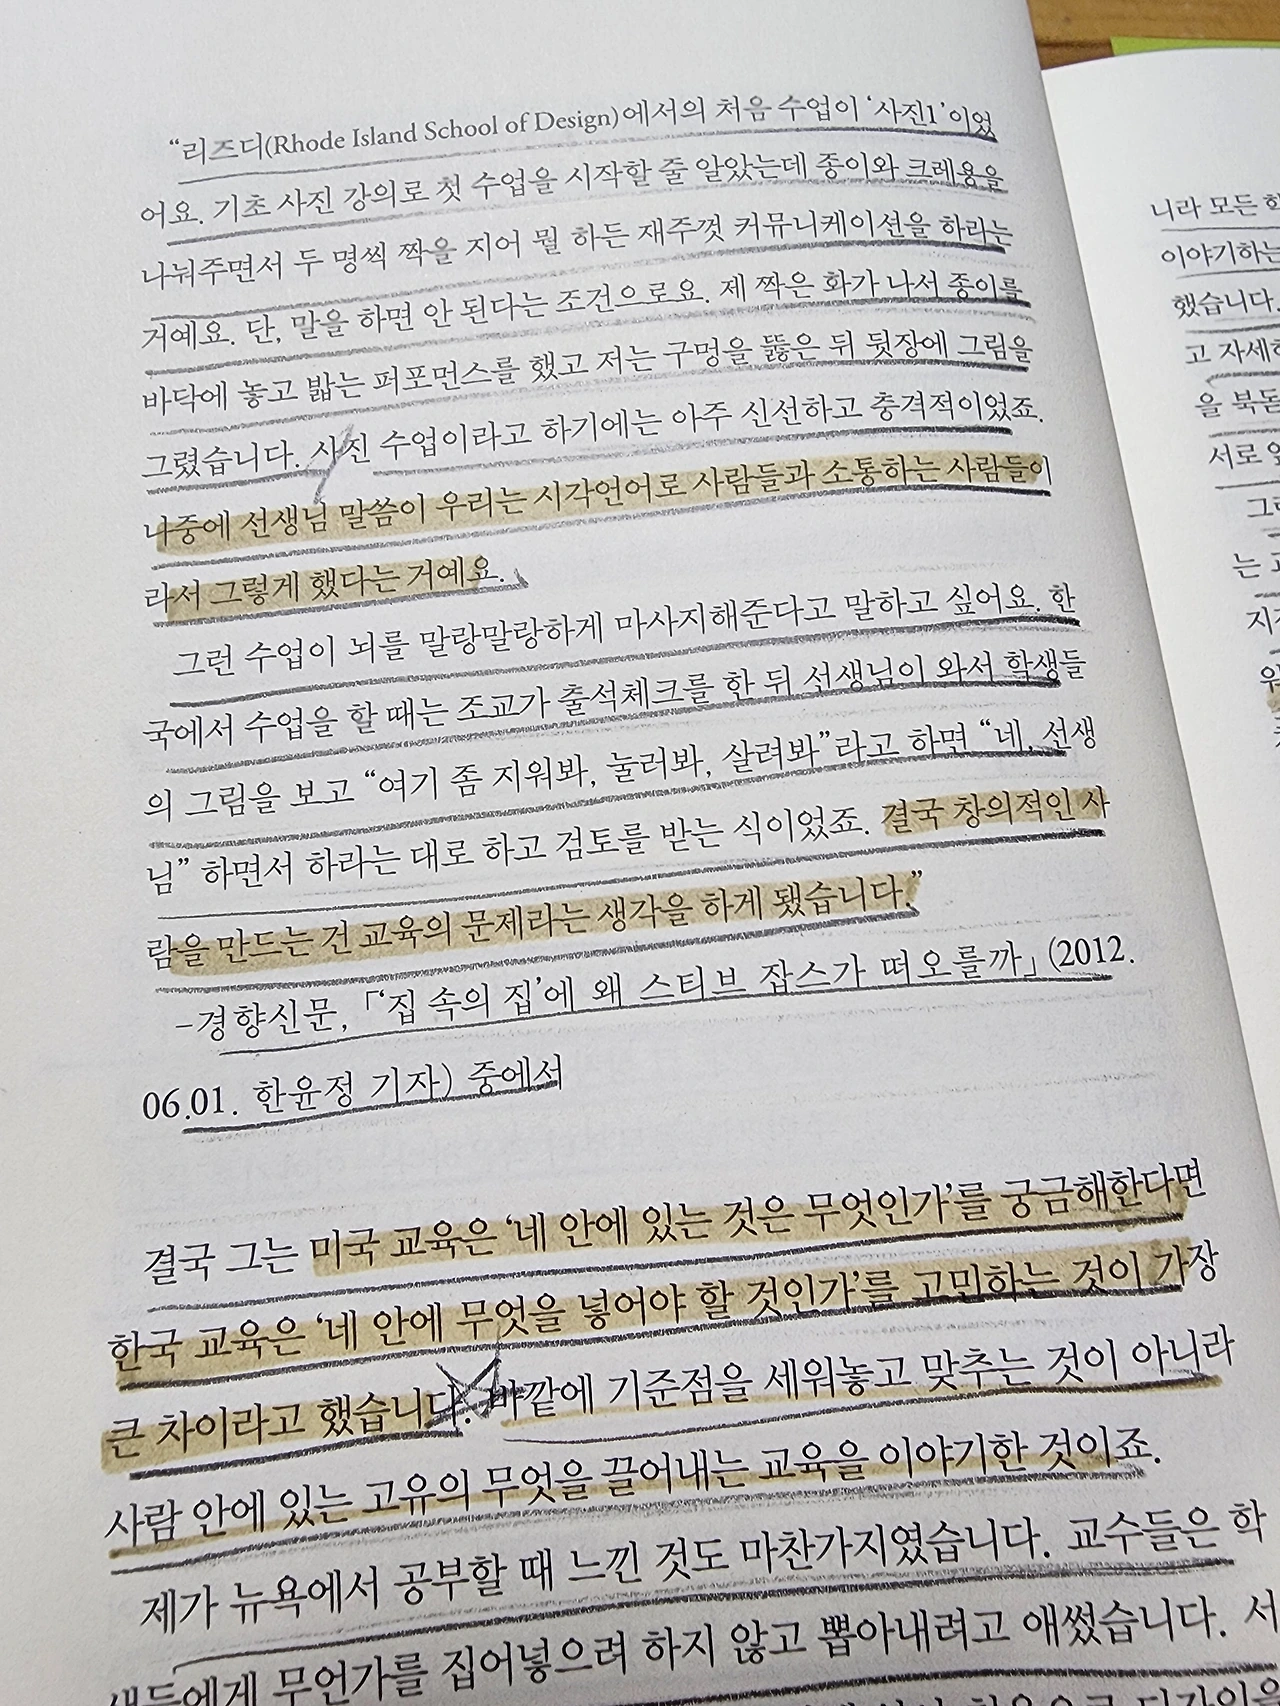 “리즈디(Rhode Island School of Design)에서의 처음 수업이 ‘사진1’이었
어요. 기초 사진 강의로 첫 수업을 시작할 줄 알았는데 종이와 크레용을
나눠주면서 두 명씩 짝을 지어 뭘 하든 재주껏 커뮤니케이션을 하라는
거예요. 단, 말을 하면 안 된다는 조건으로요. 제 짝은 화가 나서 종이를
바닥에 놓고 밟는 퍼포먼스를 했고 저는 구멍을 뚫은 뒤 뒷장에 그림을
그렸습니다. 사진 수업이라고 하기에는 아주 신선하고 충격적이었죠.
나중에 선생님 말씀이 우리는 시각언어로 사람들과 소통하는 사람들이
라서 그렇게 했다는 거예요.
그런 수업이 뇌를 말랑말랑하게 마사지해준다고 말하고 싶어요. 한
국에서 수업을 할 때는 조교가 출석체크를 한 뒤 선생님이 와서 학생들
의 그림을 보고 “여기 좀 지워봐, 눌러봐, 살려봐”라고 하면 “네, 선생
님” 하면서 하라는 대로 하고 검토를 받는 식이었죠. 결국 창의적인 사
람을 만드는 건 교육의 문제라는 생각을 하게 됐습니다.”
-경향신문, 「‘집 속의 집’에 왜 스티브 잡스가 떠오를까」 (2012.
06.01. 한윤정 기자) 중에서
결국 그는 미국 교육은 ‘네 안에 있는 것은 무엇인가’를 궁금해한다면
한국 교육은 ‘네 안에 무엇을 넣어야 할 것인가’를 고민하는 것이 가장
큰 차이라고 했습니다. 바깥에 기준점을 세워놓고 맞추는 것이 아니라
사람 안에 있는 고유의 무엇을 끌어내는 교육을 이야기한 것이죠.
제가 뉴욕에서 공부할 때 느낀 것도 마찬가지였습니다. 교수들은 학
생들에게 무언가를 집어넣으려 하지 않고 뽑아내려고 애썼습니다. 서
니라 모든
이야기하는
했습니다.
고 자세히
을 북돋
서로
는